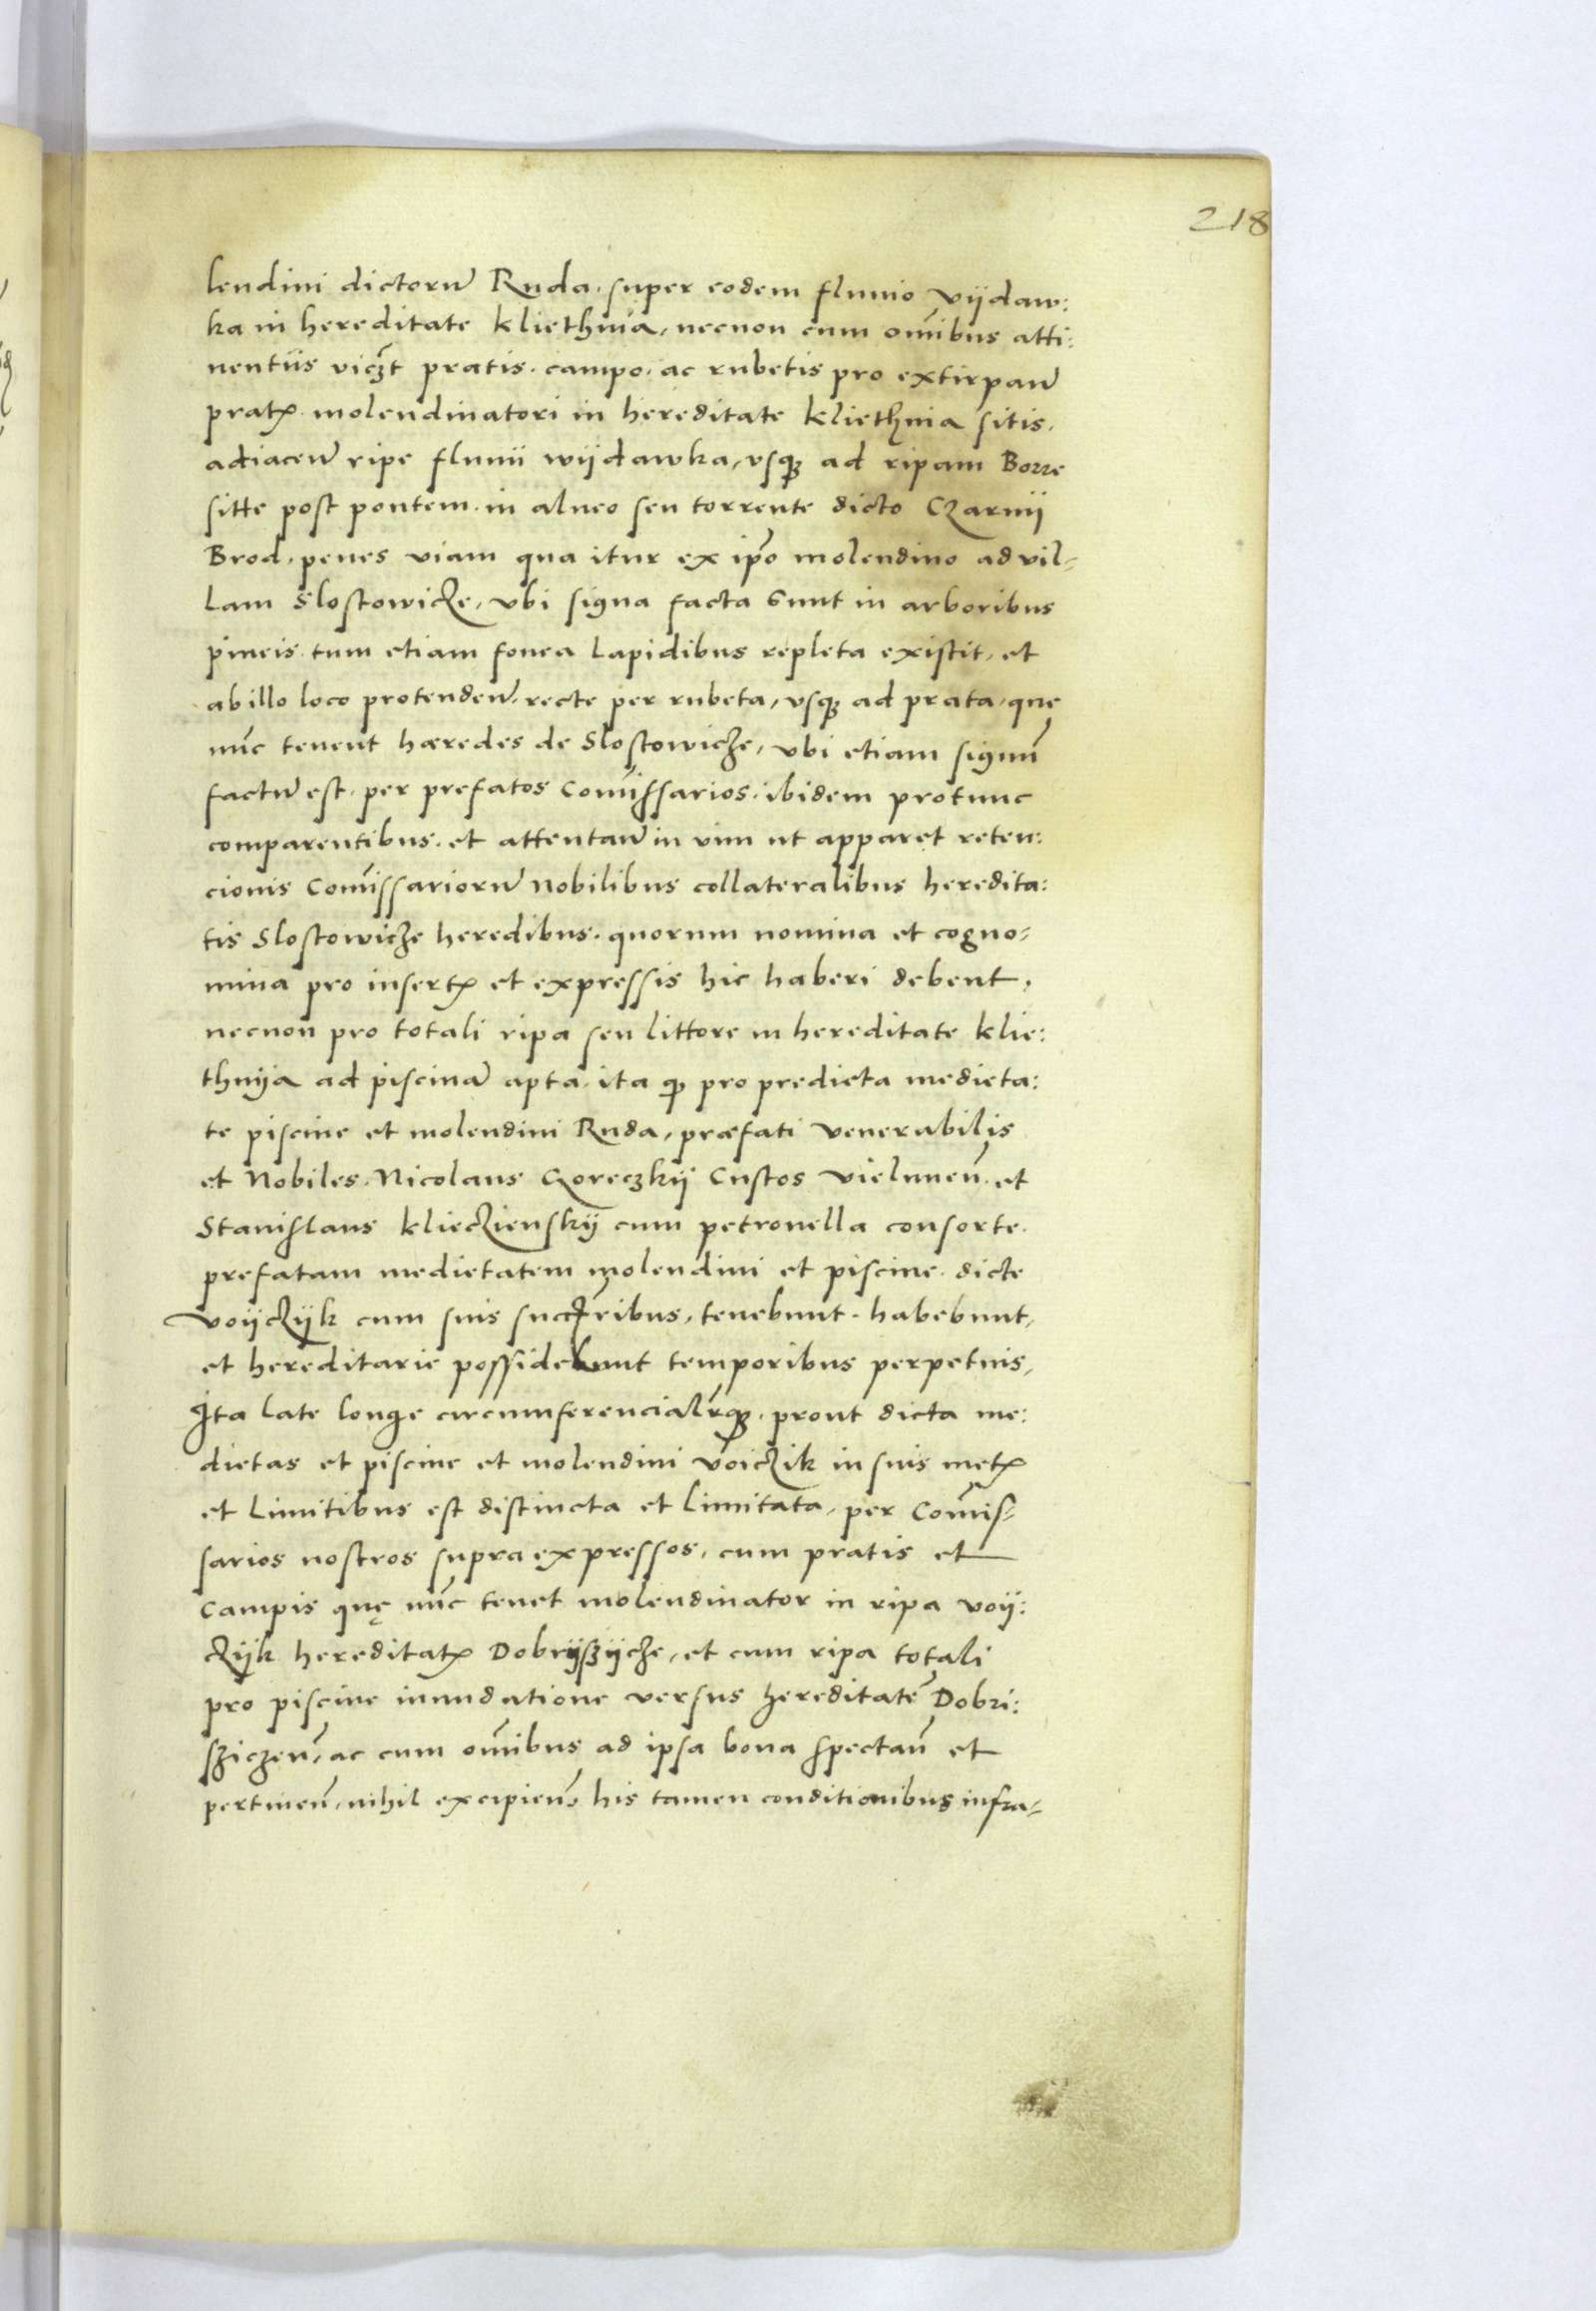 218
lendini dictorum̃ Ruda, super eodem fluuio vijdaw:
ka in hereditate kliethnia, necnon cum om̃ibus atti:
nentiis viczt pratis, campo, ac rubetis pro extirpan̄
pratꝭ molendinatori in hereditate kliethnia sitis,
adiacen̄ ripe fluuii wijdawka, vsqꝫ ad ripam Borre
sitte post pontem, in alueo seu torrente dicto Czarnij
Brod, penes viam qua itur ex ip̃o molendino ad vil-
lam Slostowicze, vbi signa facta sunt in arboribus
pineis tum etiam fouea lapidibus repleta existit, et
ab illo loco protenden̄ recte per rubeta, vsqꝫ ad prata, quę
nũc tenent hæredes de Slostowicze, vbi etiam signũ
factũ est, per prefatos Com̃issarios, ibidem protunc
comparentibus, et attentan̄ in vim ut apparet reten:
cionis Com̃issariorũ Nobilibus collateralibus heredita:
tis Slostowicze heredibus, quorum nomina et cogno-
mina pro insertꝭ et expressis hic haberi debent,
necnon pro totali ripa seu littore in hereditate klie:
thnija ad piscinã apta, ita ꝙ pro predicta medieta:
te piscine et molendini Ruda, præfati venerabilis
et Nobiles, Nicolaus Goreczkij Custos vielunen̄ et
Stanislaus klieczienskij cum petronella consorte
prefatam medietatem molendini et piscine dicte
voijczijk cum suis succr̃ibus, tenebunt, habebunt,
et hereditarie possidebunt temporibus perpetuis,
Ita late longe circumferencialr̃qꝫ, prout dicta me:
dietas et piscine et molendini voiczik in suis metꝭ
et limitibus est distincta et limitata, per Com̃is-
sarios nostros supra expressos, cum pratis et
campis quę nũc tenet molendinator in ripa voij:
czijk hereditatꝭ Dobrijszijcze, et cum ripa totali
pro piscine inundatione versus hereditatẽ Dobri:
sziczen̄, ac cum om̃ibus ad ipsa bona spectan̄ et
pertinen̄, nihil excipien̄ his tamen conditionibus infra-